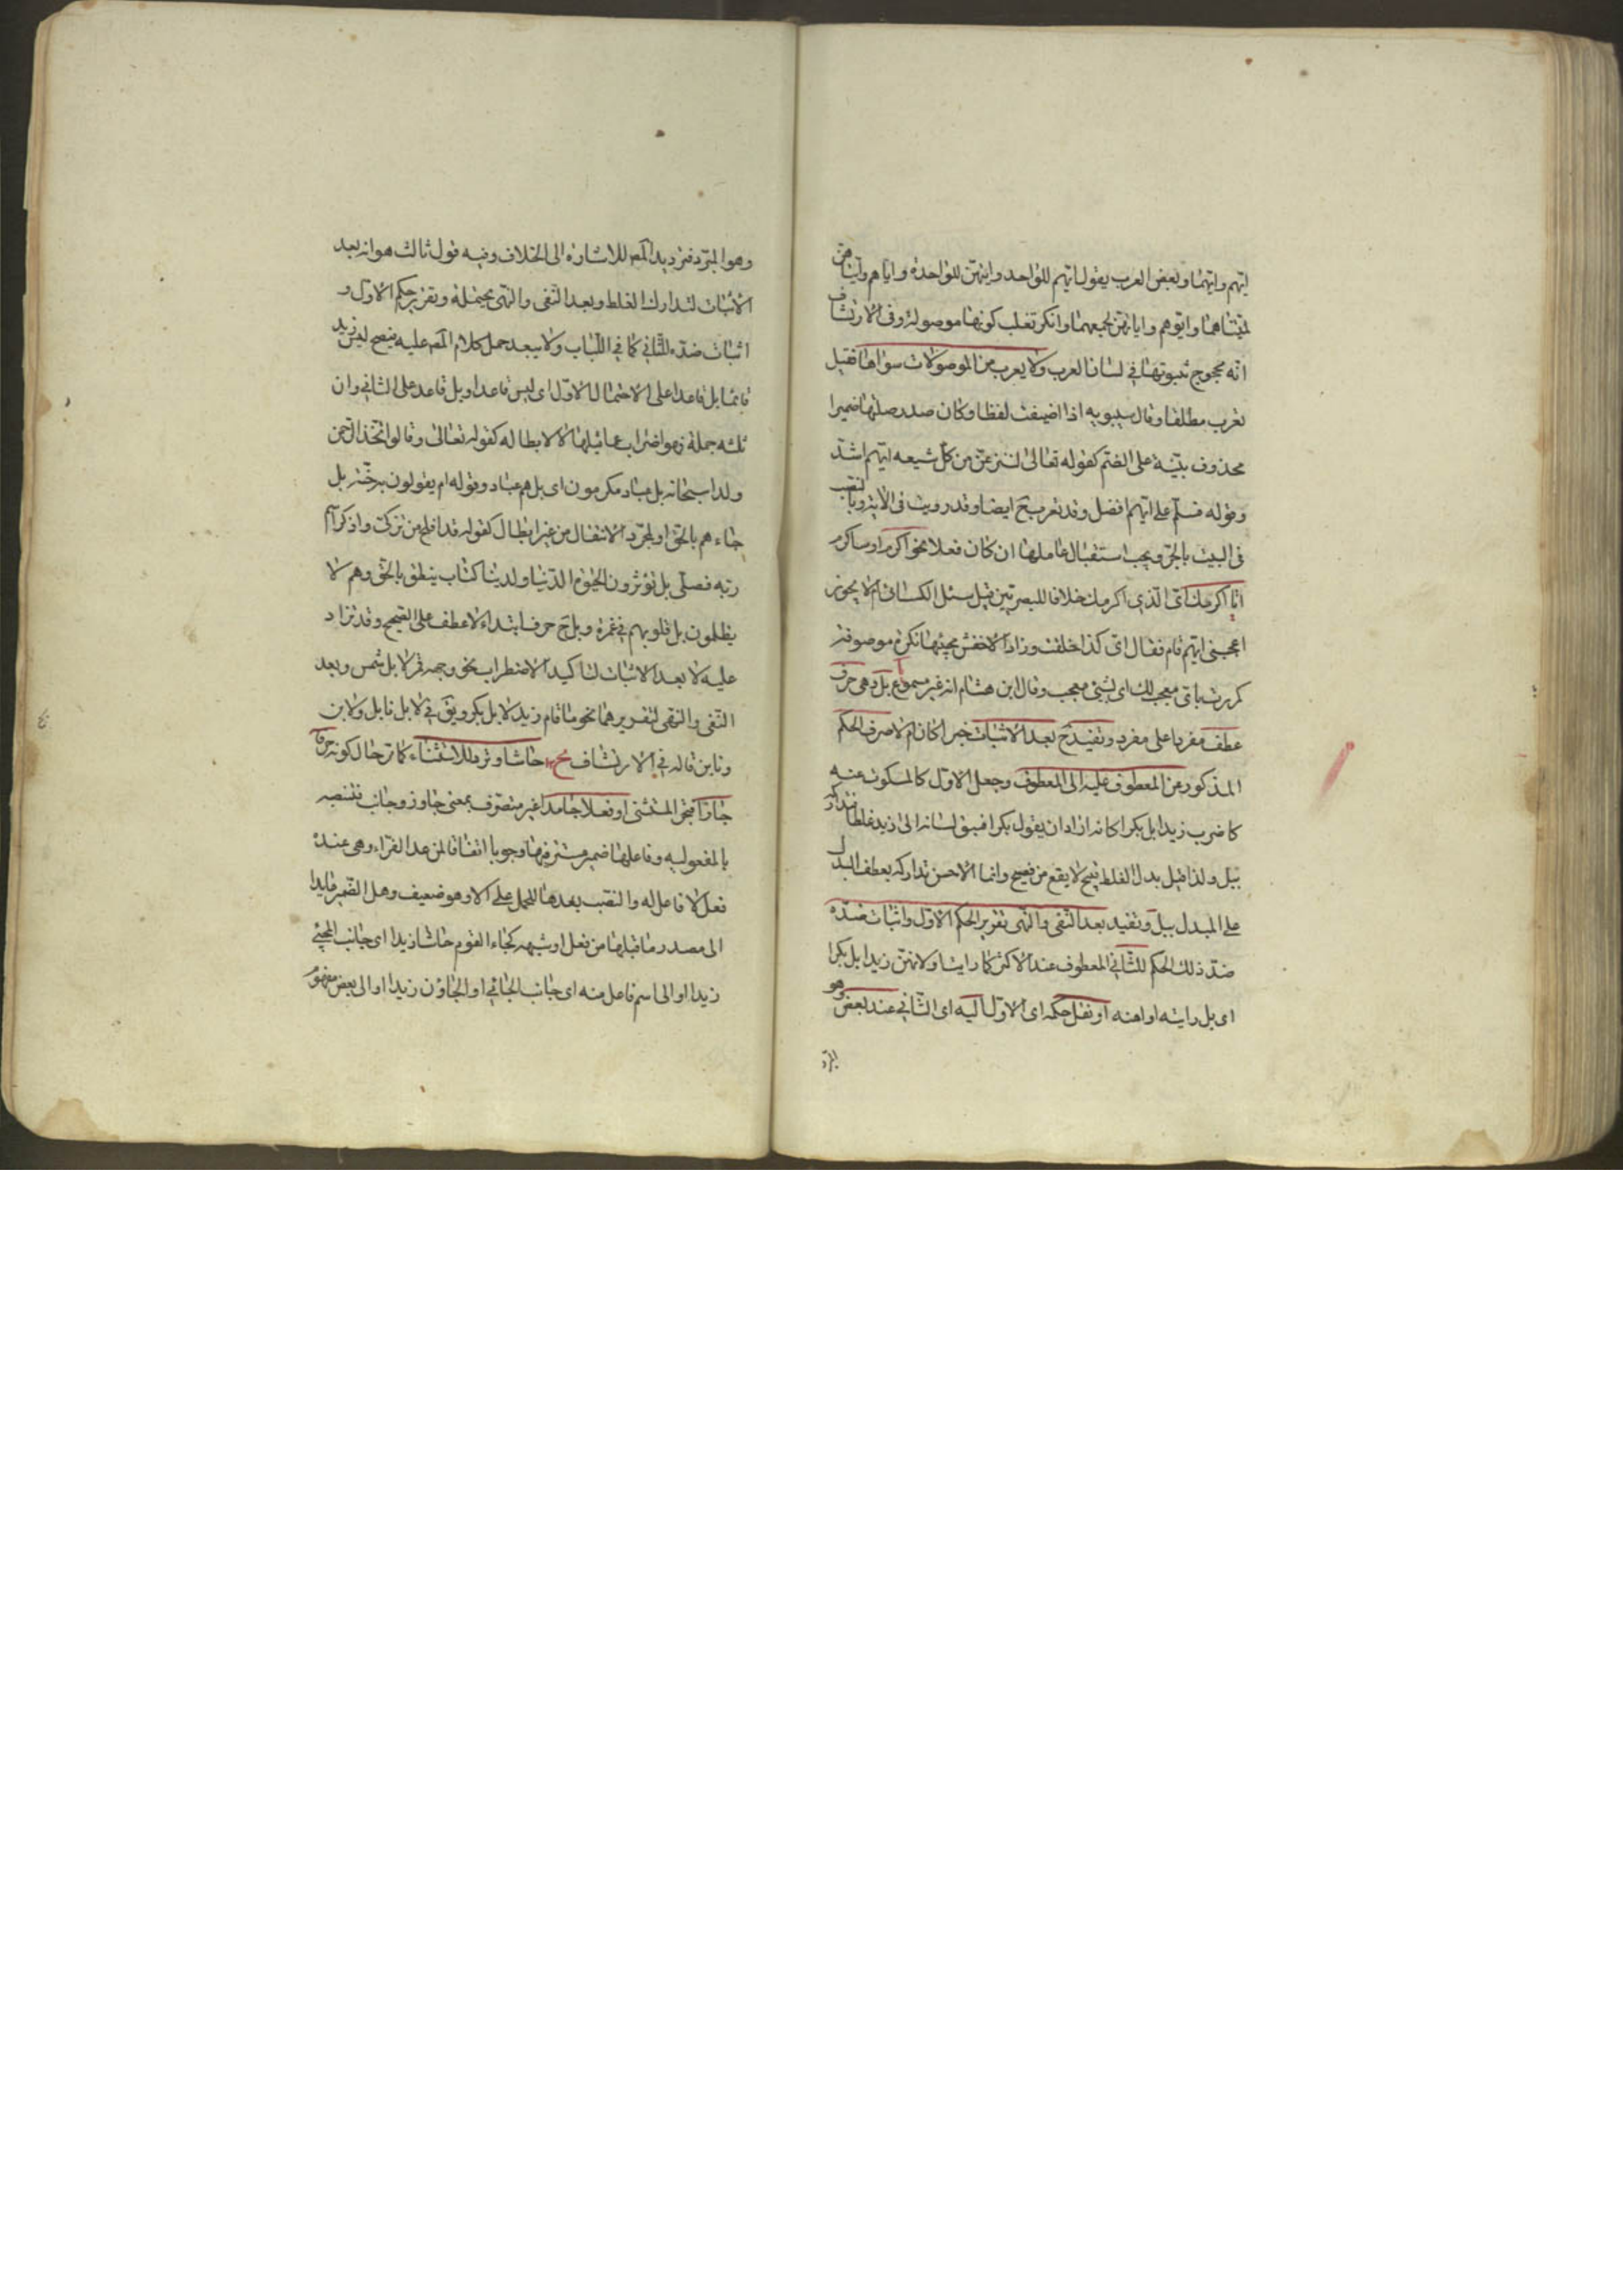 ايّهم وايّهما وبعض العرب يقول ايّهم للواحد وايّتهنّ للواحدة واياهم وايّتاهنّ
لمثنّاهما وايّوهم واياتهنّ لجمعهما وانكر ثعلب كونها موصولة وفى الارتشاف
انّه محجوج بثبوتها فى لسان العرب ولا يعرب من الموصولات سواها فقيل
تعرب مطلقا وقال سيبويه اذا اضيفت لفظا وكان صدر صلتها ضميرا
محذوف بنيت على الضمّ كقوله تعالى لننزعنّ من كلّ شيعه ايّهم اشدّ
وقوله فسلّم على ايّهم افضل وقد تعرب ح ايضا وقد رويت فى الاية بالنصب
فى البيت بالجرّ ويجب استقبال عاملها ان كان فعلا نحو اكرم او ساكرم
ايّا اكرمك اى الّذى اكرمك خلافا للبصريّين قيل سئل الكسائى ام لا يجوز
اعجبنى ايّهم قام فقال اىّ كذا خلقت وزاد الاخفش مجيئها نكرة موصوفة
كمررت باىّ معجب لك اى بشئ معجب وقال ابن هشام انه غير مسموع بل وهى حرف
عطف مفردا على مفرد وتفيد ح بعد الاثبات خبرا كان ام لا صرف الحكم
المذكور من المعطوف عليه الى المعطوف وجعل الاوّل كالمسكوت عنه
كاضرب زيدا بل بكرا كانه اراد ان يقول بكرا فسبق لسانه الى زيد غلطا فتداركه
ببل ولذا قيل بدل الغلط قبيح لا يقع من فصيح وانما الاحسن تداركه بعطف البدل
على المبدل ببل وتفيد بعد النّفى والنّهى تقرير الحكم الاوّل واثبات ضدّه
ضدّ ذلك الحكم للثّانى المعطوف عند الاكثر كما رايت او لا تهن زيدا بل بكرا
اى بل رايته او اهنه او نقل حكمه اى الاوّل اليه اى الثّانى عند بعض وهو
المبرّد
وهو المبرّد فترديد المص للاشارة الى الخلاف وفيه قول ثالث هو انه بعد
الاثبات لتدارك الغلط وبعد النّفى والنّهى يحتمله وتقرير حكم الاوّل و
اثبات ضدّه للثّانى كما فى اللّباب ولا يبعد حمل كلام المص عليه فيصح ليس زيد
قائما بل قاعدا على الاحتمال الاوّل اى ليس قاعدا وبل قاعد على الثانى وان
تلته جملة فهو اضراب عما قبلها الا لابطاله كقوله تعالى وقالوا اتّخذ الرّحمن
ولدا سبحانه بل عباد مكرمون اى بل هم عباد وقوله ام يقولون به جنّة بل
جاءهم بالحقّ او لمجرّد الانتقال من غير ابطال كقوله قد افلح من تزكّى وذكر اسم
ربّه فصلّى بل تؤثرون الحيوة الدّنيا ولدينا كتاب ينطق بالحقّ وهم لا
يظلمون بل قلوبهم فى غمرة وبل ح حرف ابتداء لا عطف على الصّحيح وقد تزاد
عليه لا بعد الاثبات لتاكيد الاضطراب نحو وجهه قمر لا بل شمس وبعد
النّفى والنّهى لتقريرهما نحو ما قام زيد لا بل بكر ويق فى لا بل نابل ولا بن
ونابن قاله فى الارتشاف حاشا وترد للاستثناء كما ترد حال كونه حرفا
جارّا فتجرّ المستثنى او فعلا جامدا غير متصرّف بمعنى جاوز وجانب فتنصبه
بالمفعوليه وفاعلها ضمير مستتر فيها وجوبا اتفاقا لمن عدا الفرّاء وهى عنده
فعل لا فاعل له والنصب بعدها للحمل على الّا وهو ضعيف وهل الضّمير عايد
الى مصدر ما قبلها من فعل او شبهه كجاء القوم حاشا زيدا اى جانب المجئ
زيدا او الى اسم فاعل منه اى جانب الجائى او الجاؤن زيدا او الى بعض مفهوم